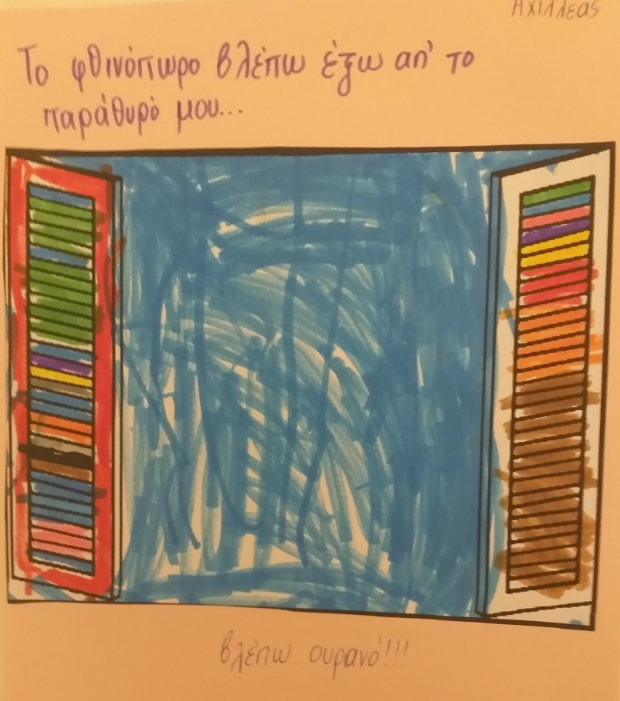 Αχιλλέας
Το φθινόπωρο βλέπω έξω απ' το
παράθυρό μου...
βλέπω ουρανό!!!